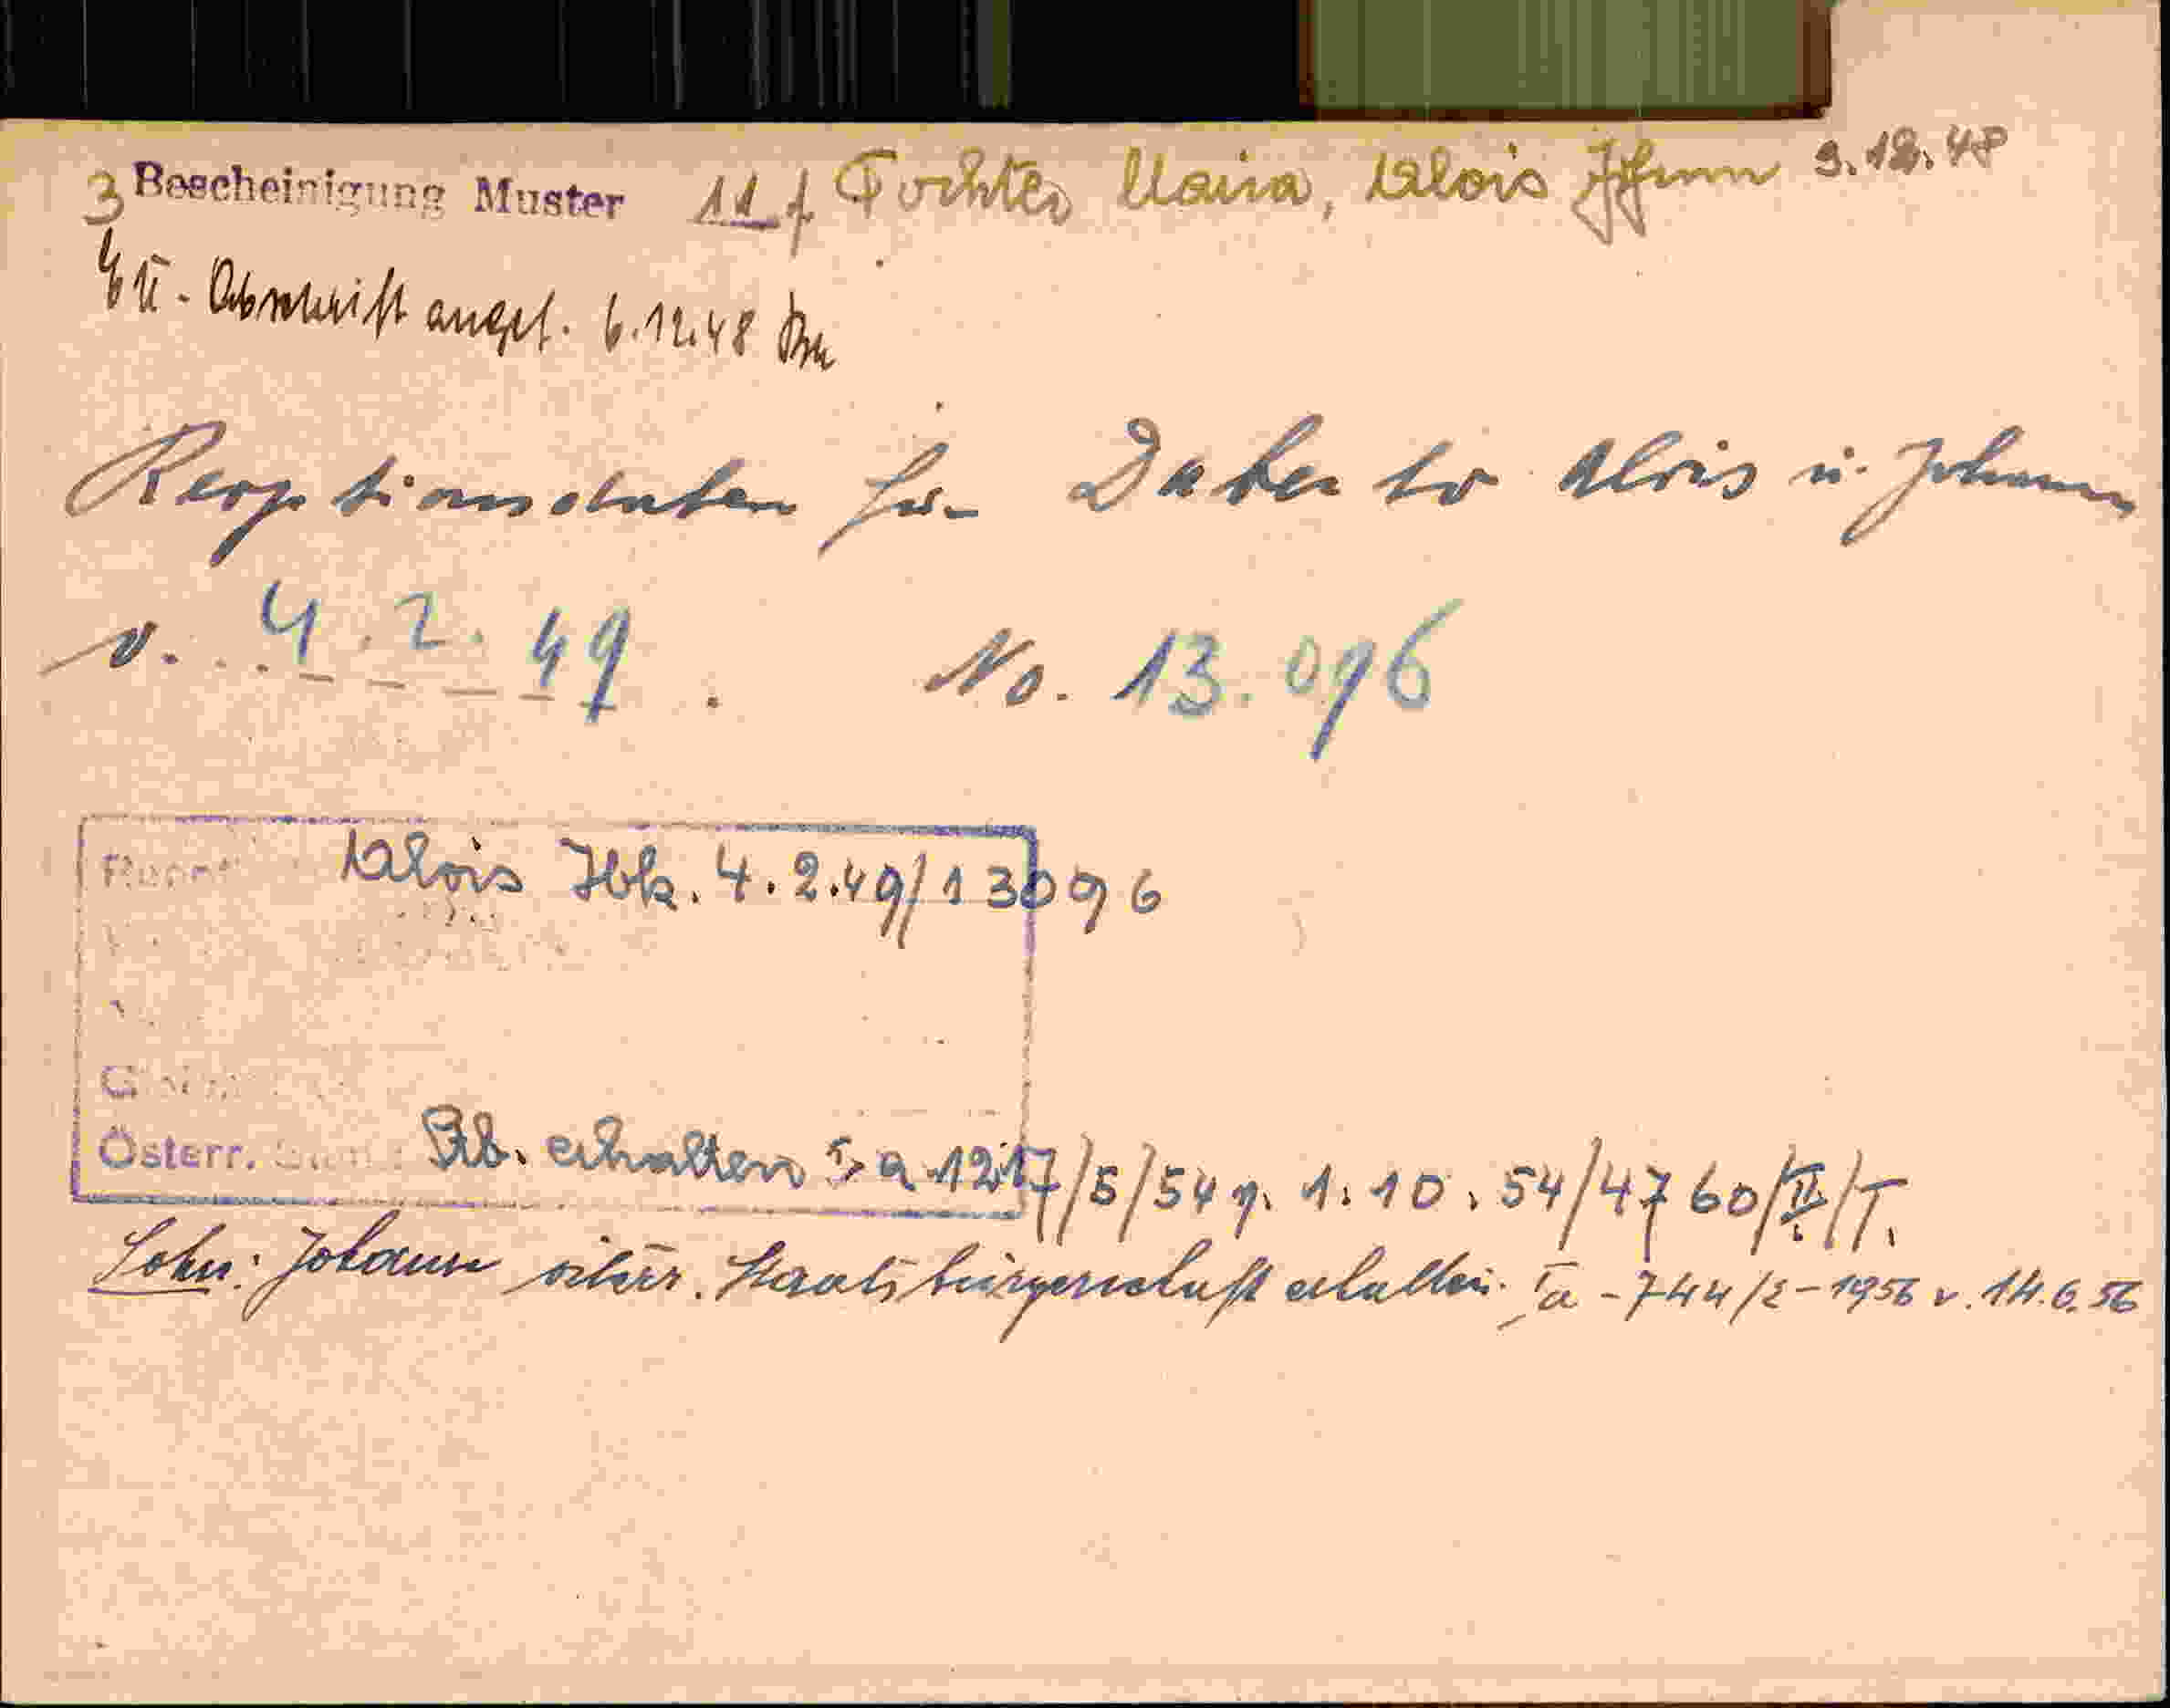 3 Bescheinigung Muster 11 f Tochter Maria, Alois Johann 9.12.48
EU - Abschrift angef. 6.12.48
Reoptionsdaten für Daberto Alois u. Johann
v. 4.2.49. No. 13.096
Alois Ibk. 4.2.49/13096
Österr. Stb. erhalten Ia 1217/5/54 v. 1.10.54/4760/II/T.
Sohn: Johann österr. Staatsbürgerschaft erhalten. Ia - 744/2-1956 v. 14.6.56